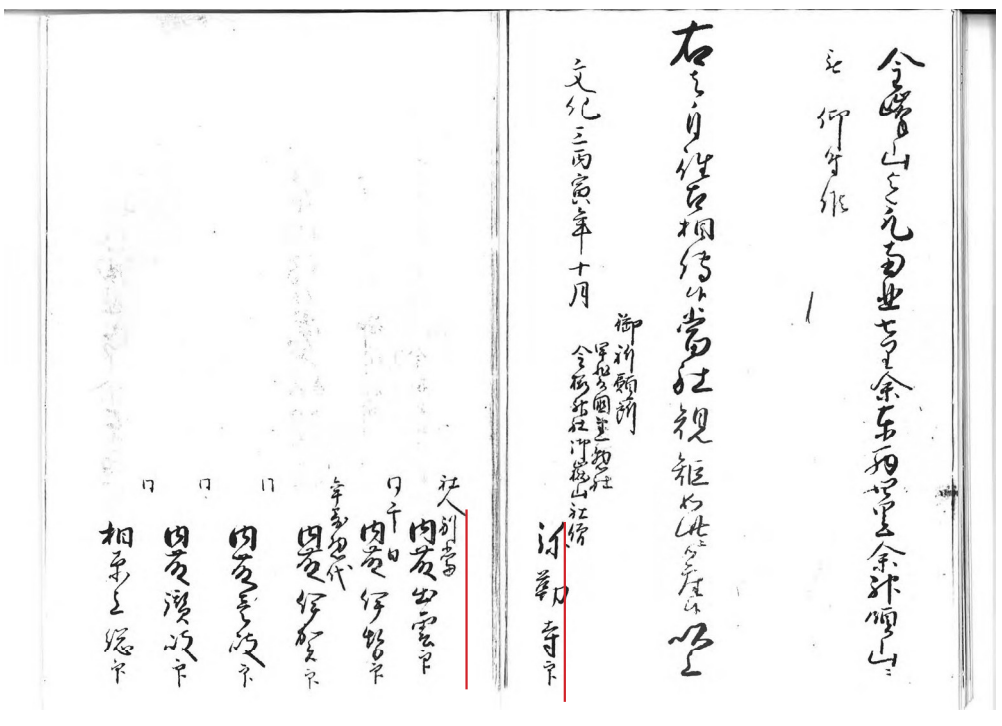 金峯山之元南北七里余東西四里余神領山ニ
被 仰付候
右之自往古相傳候當社規矩如此ニ御座候以上
文化三丙寅年十月
御祈願所
甲斐国惣社
金櫻神社御嶽山社僧
弥勒寺印
社人別當
内藤出雲印
同
内藤伊勢印
年寄惣代
内藤伊賀印
同
内藤壱岐印
同
内藤讃岐印
同
相原上総印